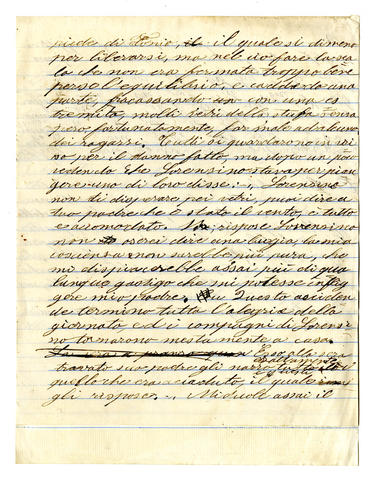 piede di Tonio, il quale si dimenò
per liberarsi, ma nel ciò fare la sca
la che non era fermata troppo bene
perse l'equilibrio, e cadde da una
parte, fracassando con una es
tremità, molti vetri della stufa senza
però fortunatamente, far male ad alcuno
dei ragazzi. Tutti si guardarono in vi
so per il danno fatto, ma dopo un poco
vedendo che Lorenzino stava per pian
gere uno di loro disse: Lorenzino
non ti disperare pei vetri, puoi dire a
tuo padre che è stato il vento, e tutto
è accomodato. No, rispose Lorenzino
non oserei dire una bugia, la mia
coscienza non sarebbe più pura, che
mi dispiacerebbe assai più di qua
lunque gastigo che mi potesse infli
gere mio padre. Questo acciden
te terminò tutta l'allegria della
giornata ed i compagni di Lorenzi
no tornarono mestamente a casa.
sera
trovato suo padre gli narrò
quello che era accaduto, il quale
gli rispose. Mi duole assai il